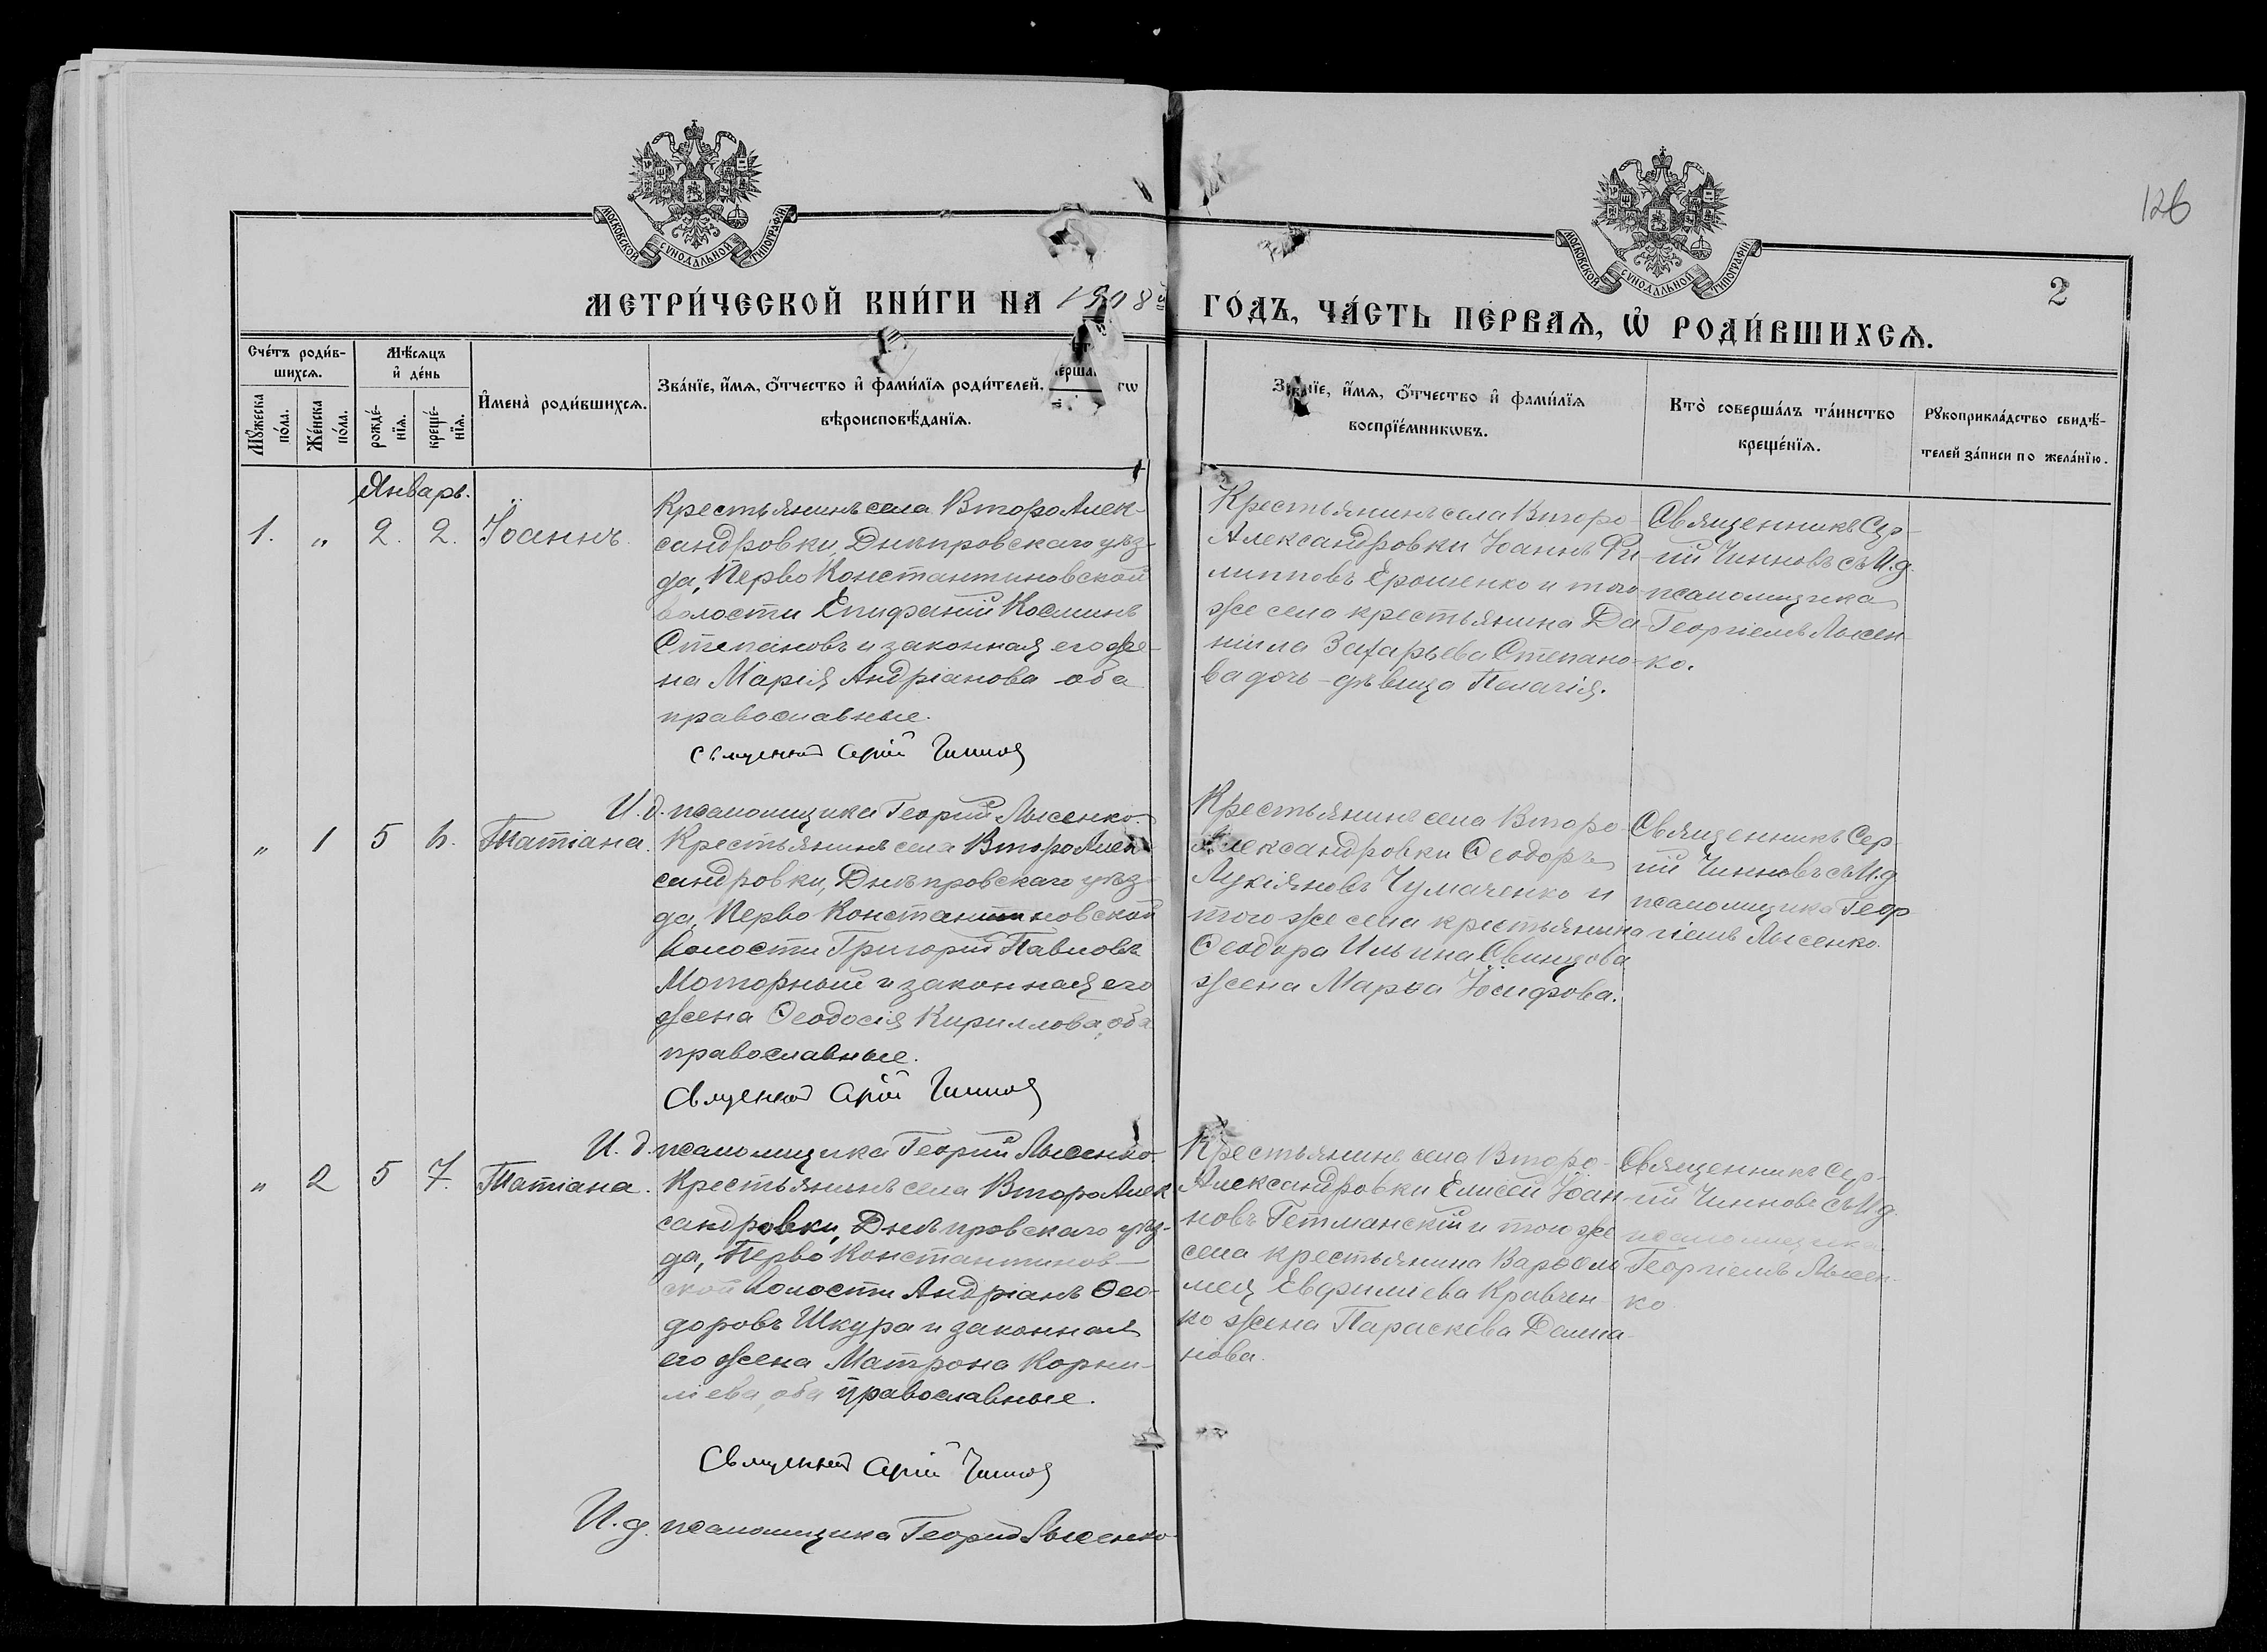 126
МОСКОВСКОЙ СѴНОДАЛЬНОЙ ТИПОГРАФІИ
МОСКОВСКОЙ СѴНОДАЛЬНОЙ ТИПОГРАФІИ
2
МЕТРИ́ЧЕСКОЙ КНИ́ГИ НА 1908й ГО́ДЪ, ЧА́СТЬ ПЕ́РВАѦ, Ѡ҆ РОДИ́ВШИХСѦ.
Сче́тъ роди́в-
шихсѧ.
Мꙋ́жеска по́ла.
Же́нска по́ла.
Мѣ́сѧцъ
и҆ де́нь
рожде́-
нїѧ.
креще́-
нїѧ.
И҆мена̀ роди́вшихсѧ.
Зва́нїе, и҆́мѧ, ѻ҆́тчество и҆ фами́лїѧ роди́телей,
вѣроисповѣ́данїѧ.
Зва́нїе, и҆́мѧ, ѻ҆́тчество и҆ фами́лїѧ
воспрїе́мникѡвъ.
Кто̀ соверша́лъ та́инство
креще́нїѧ.
Рꙋкоприкла́дство свидѣ́-
телей за́писи по жела́нїю.
Январь.
1. „ 2. 2. Іоаннъ.
Крестьянинъ села ВтороАлек-
сандровки, Днѣпровскаго уѣз-
да, ПервоКонстантиновской
волости Епифаній Косминъ
Степановъ и законная его же-
на Марія Андріанова оба
православные.
Священникъ Сергій Чинновъ
И. д. псаломщика Георгій Лысенко.
Крестьянинъ села Второ-
Александровки Іоаннъ Фи-
липповъ Ерошенко и того
же села крестьянина Да-
ніила Захарьева Степано-
ва дочь-дѣвица Пелагія.
Священникъ Сер-
гій Чинновъ съ И.д.
псаломщика
Георгіемъ Лысен-
ко.
„ 1 5 6. Татіана.
Крестьянинъ села ВтороАлек-
сандровки, Днѣпровскаго уѣз-
да, ПервоКонстантиновской
волости Григорій Павловъ
Моторный и законная его
жена Ѳеодосія Кириллова, оба
православные.
Священникъ Сергій Чинновъ
И. д. псаломщика Георгій Лысенко.
Крестьянинъ села Второ-
Александровки Ѳеодоръ
Лукіяновъ Чумаченко и
того же села крестьянина
Ѳеодора Ильина Свинцова
жена Марѳа Іосифова.
Священникъ Сер-
гій Чинновъ съ И.д.
псаломщика Геор-
гіемъ Лысенко.
„ 2 5 7. Татіана.
Крестьянинъ села ВтороАлек-
сандровки, Днѣпровскаго уѣз-
да, ПервоКонстантинов-
ской волости Андріанъ Ѳео-
доровъ Шкура и законная
его жена Матрона Корни-
ліева, оба православные.
Священникъ Сергій Чинновъ
И. д. псаломщика Георгій Лысенко
Крестьянинъ села Второ-
Александровки Елисей Іоан-
новъ Гетманскій и того же
села крестьянина Варѳоло-
мея Евфиміева Кравчен-
ко жена Параскева Даміа-
нова.
Священникъ Сер-
гій Чинновъ съ И.д.
псаломщика
Георгіемъ Лысен-
ко